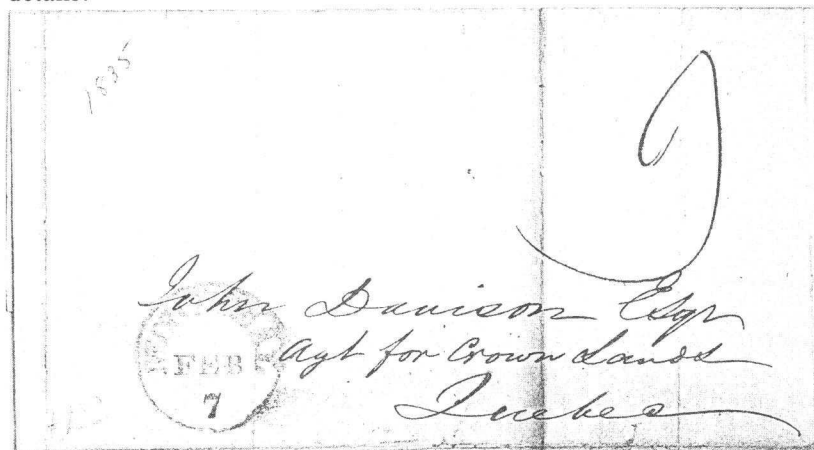 details.
1835
9
John Davison Esqr
Agt for Crown Lands
Quebec
FEB
7